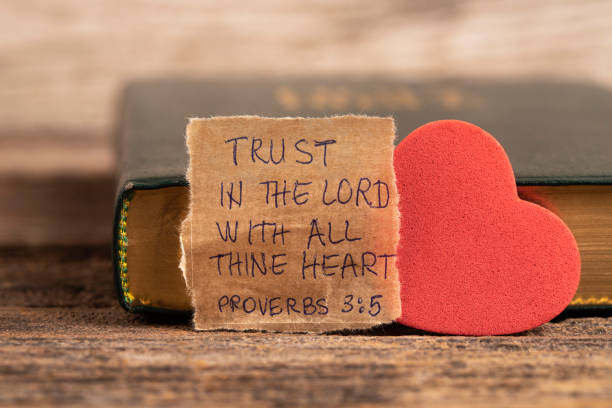 TRUST
IN THE LORD
WITH ALL
THINE HEART
PROVERBS 3:5